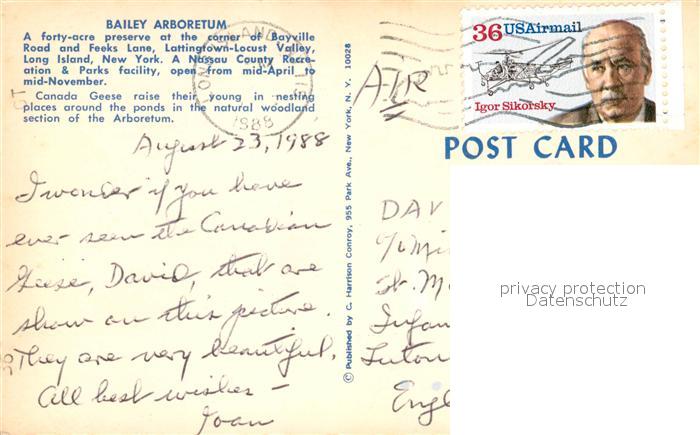 BAILEY ARBORETUM
A forty-acre preserve at the corner of Bayville
Road and Feeks Lane, Lattingtown-Locust Valley,
Long Island, New York. A Nassau County Recre-
ation & Parks facility, open from mid-April to
mid-November.
Canada Geese raise their young in nesting
places around the ponds in the natural woodland
section of the Arboretum.
1988
August 23, 1988
I wonder if you have
ever seen the Canadian
Geese, David, that are
show on this picture.
They are very beautiful.
All best wishes –
Joan
© Published by C. Harrison Conroy, 955 Park Ave., New York, N. Y. 10028
AIR
36 USAirmail
Igor Sikorsky
POST CARD
DAV
c/o Mi
St. M
Infan
Luton
Engl
privacy protection
Datenschutz